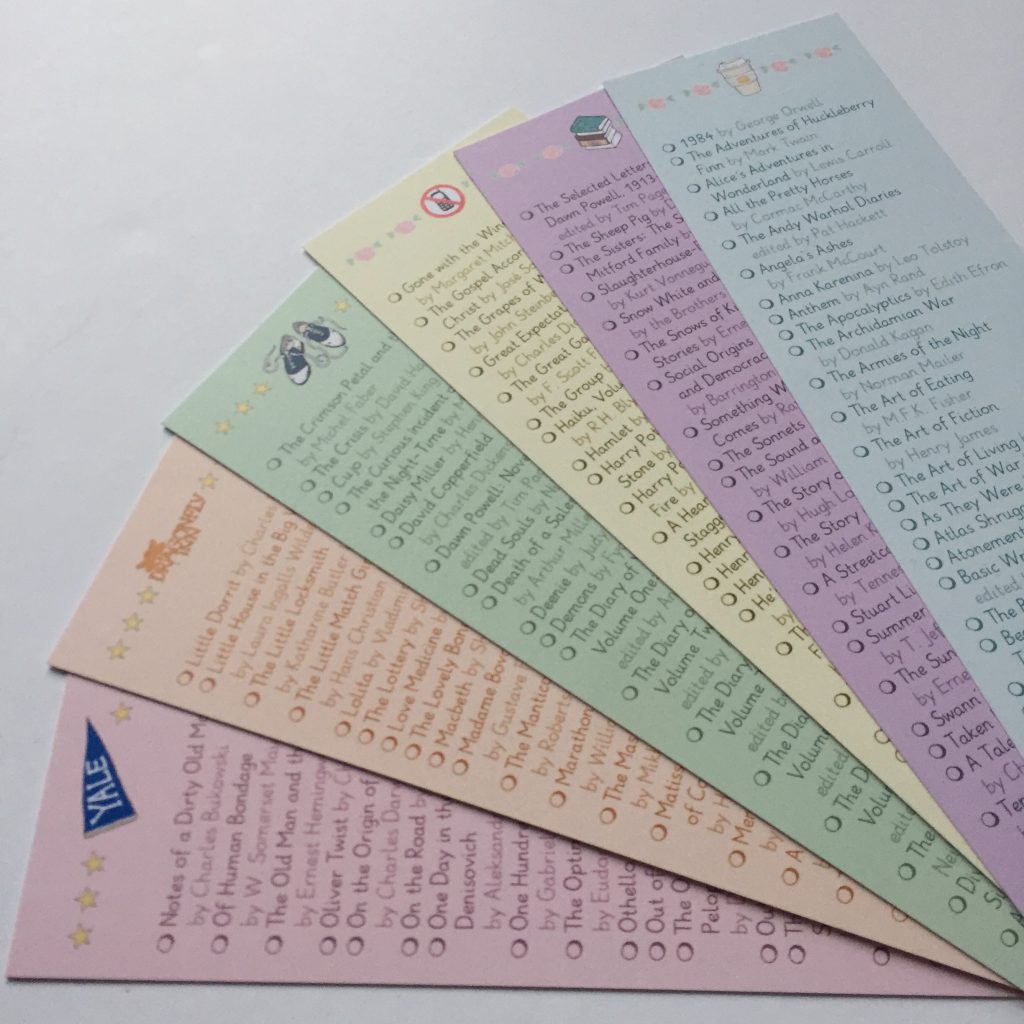 1984 by George Orwell
The Adventures of Huckleberry
Finn by Mark Twain
Alice's Adventures in
Wonderland by Lewis Carroll
All the Pretty Horses
by Cormac McCarthy
The Andy Warhol Diaries
edited by Pat Hackett
Angela's Ashes
by Frank McCourt
Anna Karenina by Leo Tolstoy
Anthem by Ayn Rand
The Apocalyptics by Edith Efron
The Archidamian War
by Donald Kagan
The Armies of the Night
by Norman Mailer
The Art of Eating
by M.F.K. Fisher
The Art of Fiction
by Henry James
The Art of Living
The Art of War
As They Were
Atlas Shrugg
Atonement
Basic Wr
edited
The
The Selected Letter
Dawn Powell, 1913
edited by Tim Page
The Sheep Pig by
The Sisters: The S
Mitford Family b
Slaughterhouse-
by Kurt Vonnegu
Snow White and
by the Brothers
The Snows of K
Stories by Erne
Social Origins
and Democrac
by Barrington
Something W
Comes by Ra
The Sonnets
The Sound a
by William
The Story o
by Hugh Lo
The Story
by Helen K
A Streetca
by Tennes
Stuart Li
Summer
by T. Jef
The Sun
by Erne
Swann'
Taken
A Tale
by Ch
Gone with the Win
by Margaret Mitch
The Gospel Accor
Christ by José Sa
The Grapes of W
by John Steinbe
Great Expectat
by Charles Di
The Great Ga
by F. Scott F
The Group
Haiku, Volu
by R.H. Bly
Hamlet b
Harry Po
Stone by
Harry Po
Fire by
A Hear
Stagg
Henr
Henr
Hen
He
The Crimson Petal and
by Michel Faber
The Crisis by David Ha
Cujo by Stephen King
The Curious Incident
the Night-Time by M
Daisy Miller by Hen
David Copperfield
by Charles Dicken
Dawn Powell: Nove
edited by Tim Pa
Dead Souls by N
Death of a Sale
by Arthur Mill
Deenie by Judy
Demons by Fy
The Diary of
Volume One
edited by An
The Diary o
Volume Tw
edited by
The Diary
Volume
edited b
The Dia
Volum
edited
The D
Volu
edit
The
Little Dorrit by Charles
Little House in the Big
by Laura Ingalls Wilde
The Little Locksmith
by Katharine Butler
The Little Match G
by Hans Christian
Lolita by Vladim
The Lottery by Sh
Love Medicine b
The Lovely Bon
Macbeth by Sh
Madame Bov
by Gustave
The Mantico
by Roberts
Marathon
by Willi
The Ma
by Mik
Matiss
of Co
by H
YALE
Notes of a Dirty Old M
by Charles Bukowski
Of Human Bondage
by W. Somerset Mau
The Old Man and the
by Ernest Hemingw
Oliver Twist by Ch
On the Origin of
by Charles Dar
On the Road b
One Day in the
Denisovich
by Aleksand
One Hundr
by Gabrie
The Optim
by Eudo
Othello
Out of
The O
Pelo
by